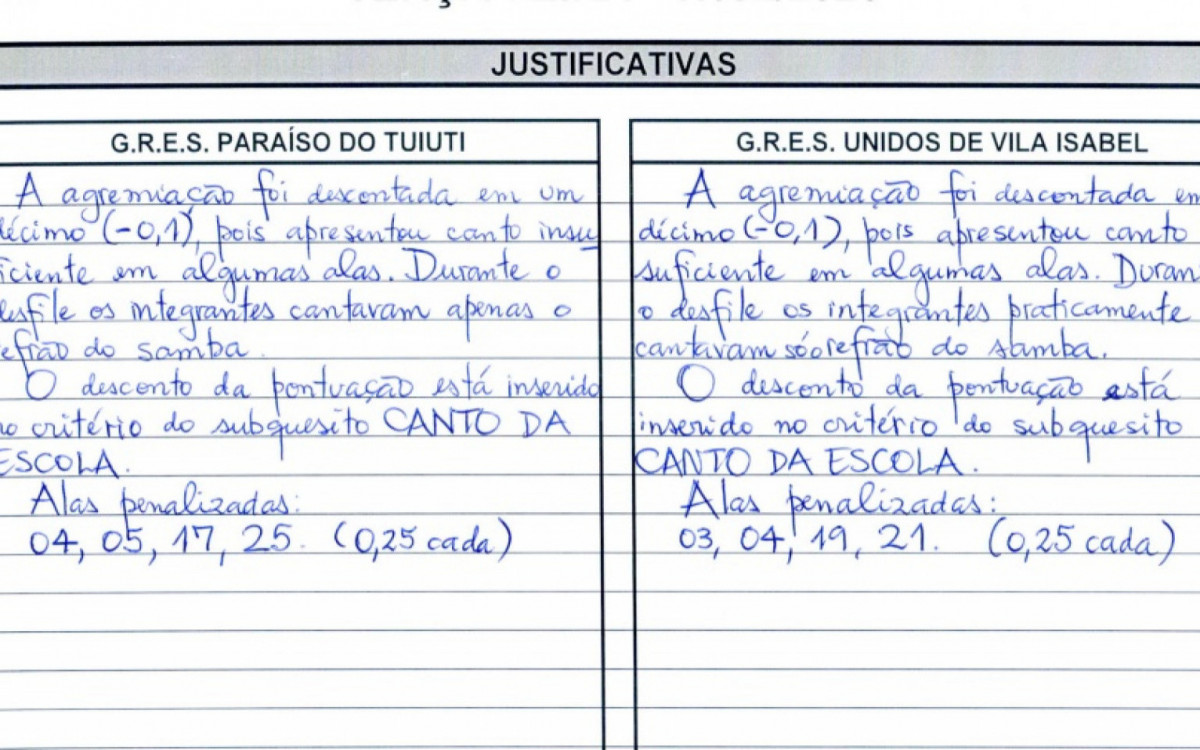 JUSTIFICATIVAS
G.R.E.S. PARAÍSO DO TUIUTI
A agremiação foi descontada em um
décimo (-0,1), pois apresentou canto insu
ficiente em algumas alas. Durante o
desfile os integrantes cantavam apenas o
refrão do samba.
O desconto da pontuação está inserido
no critério do subquesito CANTO DA
ESCOLA.
Alas penalizadas:
04, 05, 17, 25. (0,25 cada)
G.R.E.S. UNIDOS DE VILA ISABEL
A agremiação foi descontada em
décimo (-0,1), pois apresentou canto
suficiente em algumas alas. Duran
o desfile os integrantes praticamente
cantavam só o refrão do samba.
O desconto da pontuação está
inserido no critério do subquesito
CANTO DA ESCOLA.
Alas penalizadas:
03, 04, 19, 21. (0,25 cada)